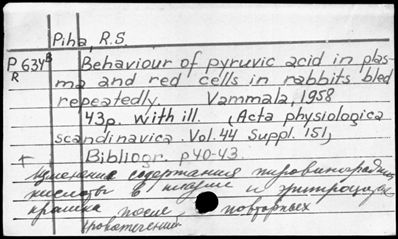 Piha, R.S.
P 634В Behaviour of pyruvic acid in plas-
R ma and red cells in rabbits bled
repeatedly. Vammala, 1958
43p. with ill. (Acta physiologica
scandinavica. Vol. 44 Suppl. 151)
Bibliogr. p 40-43.
изменение содержания пировиноградной
кислоты в плазме и эритроцитах
кролика после повторных
кровотечений